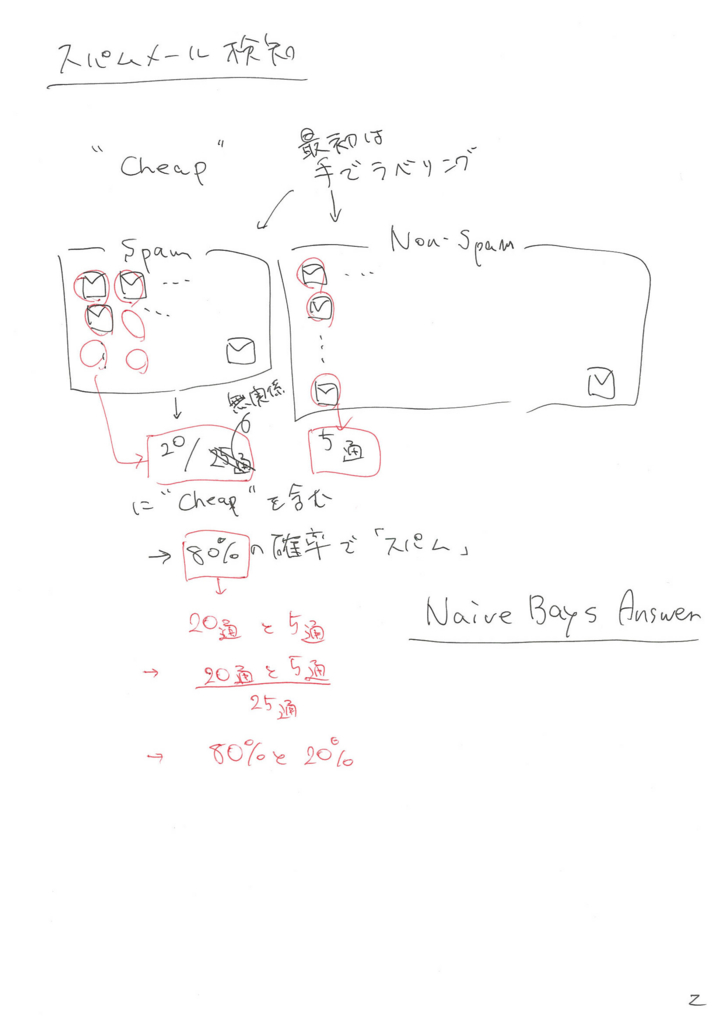 スパムメール検知
"Cheap"
最初は
手でラベリング
Spam
Non-Spam
無関係
20/25通
5通
に"Cheap"を含む
→ 80%の確率で「スパム」
20通と5通
→ 20通と5通
25通
→ 80%と20%
Naive Bays Answer
2